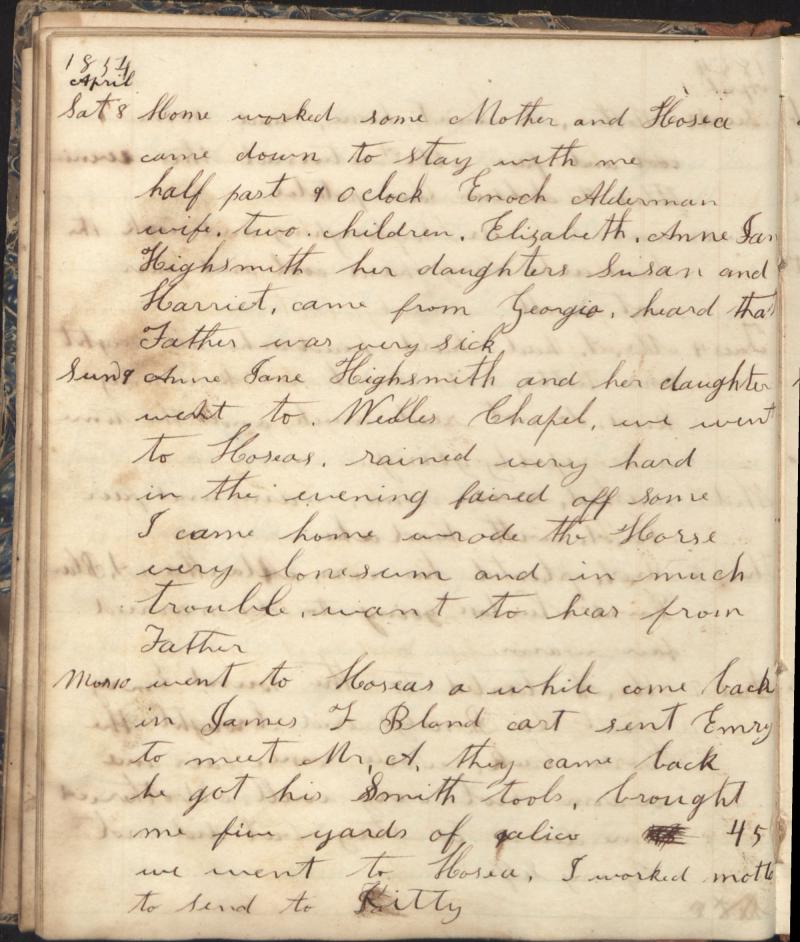 1854
April
Sat 8 Home worked some Mother and Hosea
came down to stay with me
half past 9 O clock Enoch Alderman
wife. two. children. Elizabeth. Anne Jan
Highsmith her daughters Susan and
Harriet, came from Georgia, heard that
Father was very sick
Sund 9 Anne Jane Highsmith and her daughter
went to. Chapel, we went
to Hoseas. rained very hard
in the evening faired off some
I came home wrode the Horse
very lonesum and in much
trouble. want to hear from
Father
Mon 10 went to Hoseas a while come back
in James F Bland cart sent Emry
to meet Mr. A. they came back
he got his Smith tools, brought
me five yards of calico 45
we went to Hosea. I worked
to send to Kitty